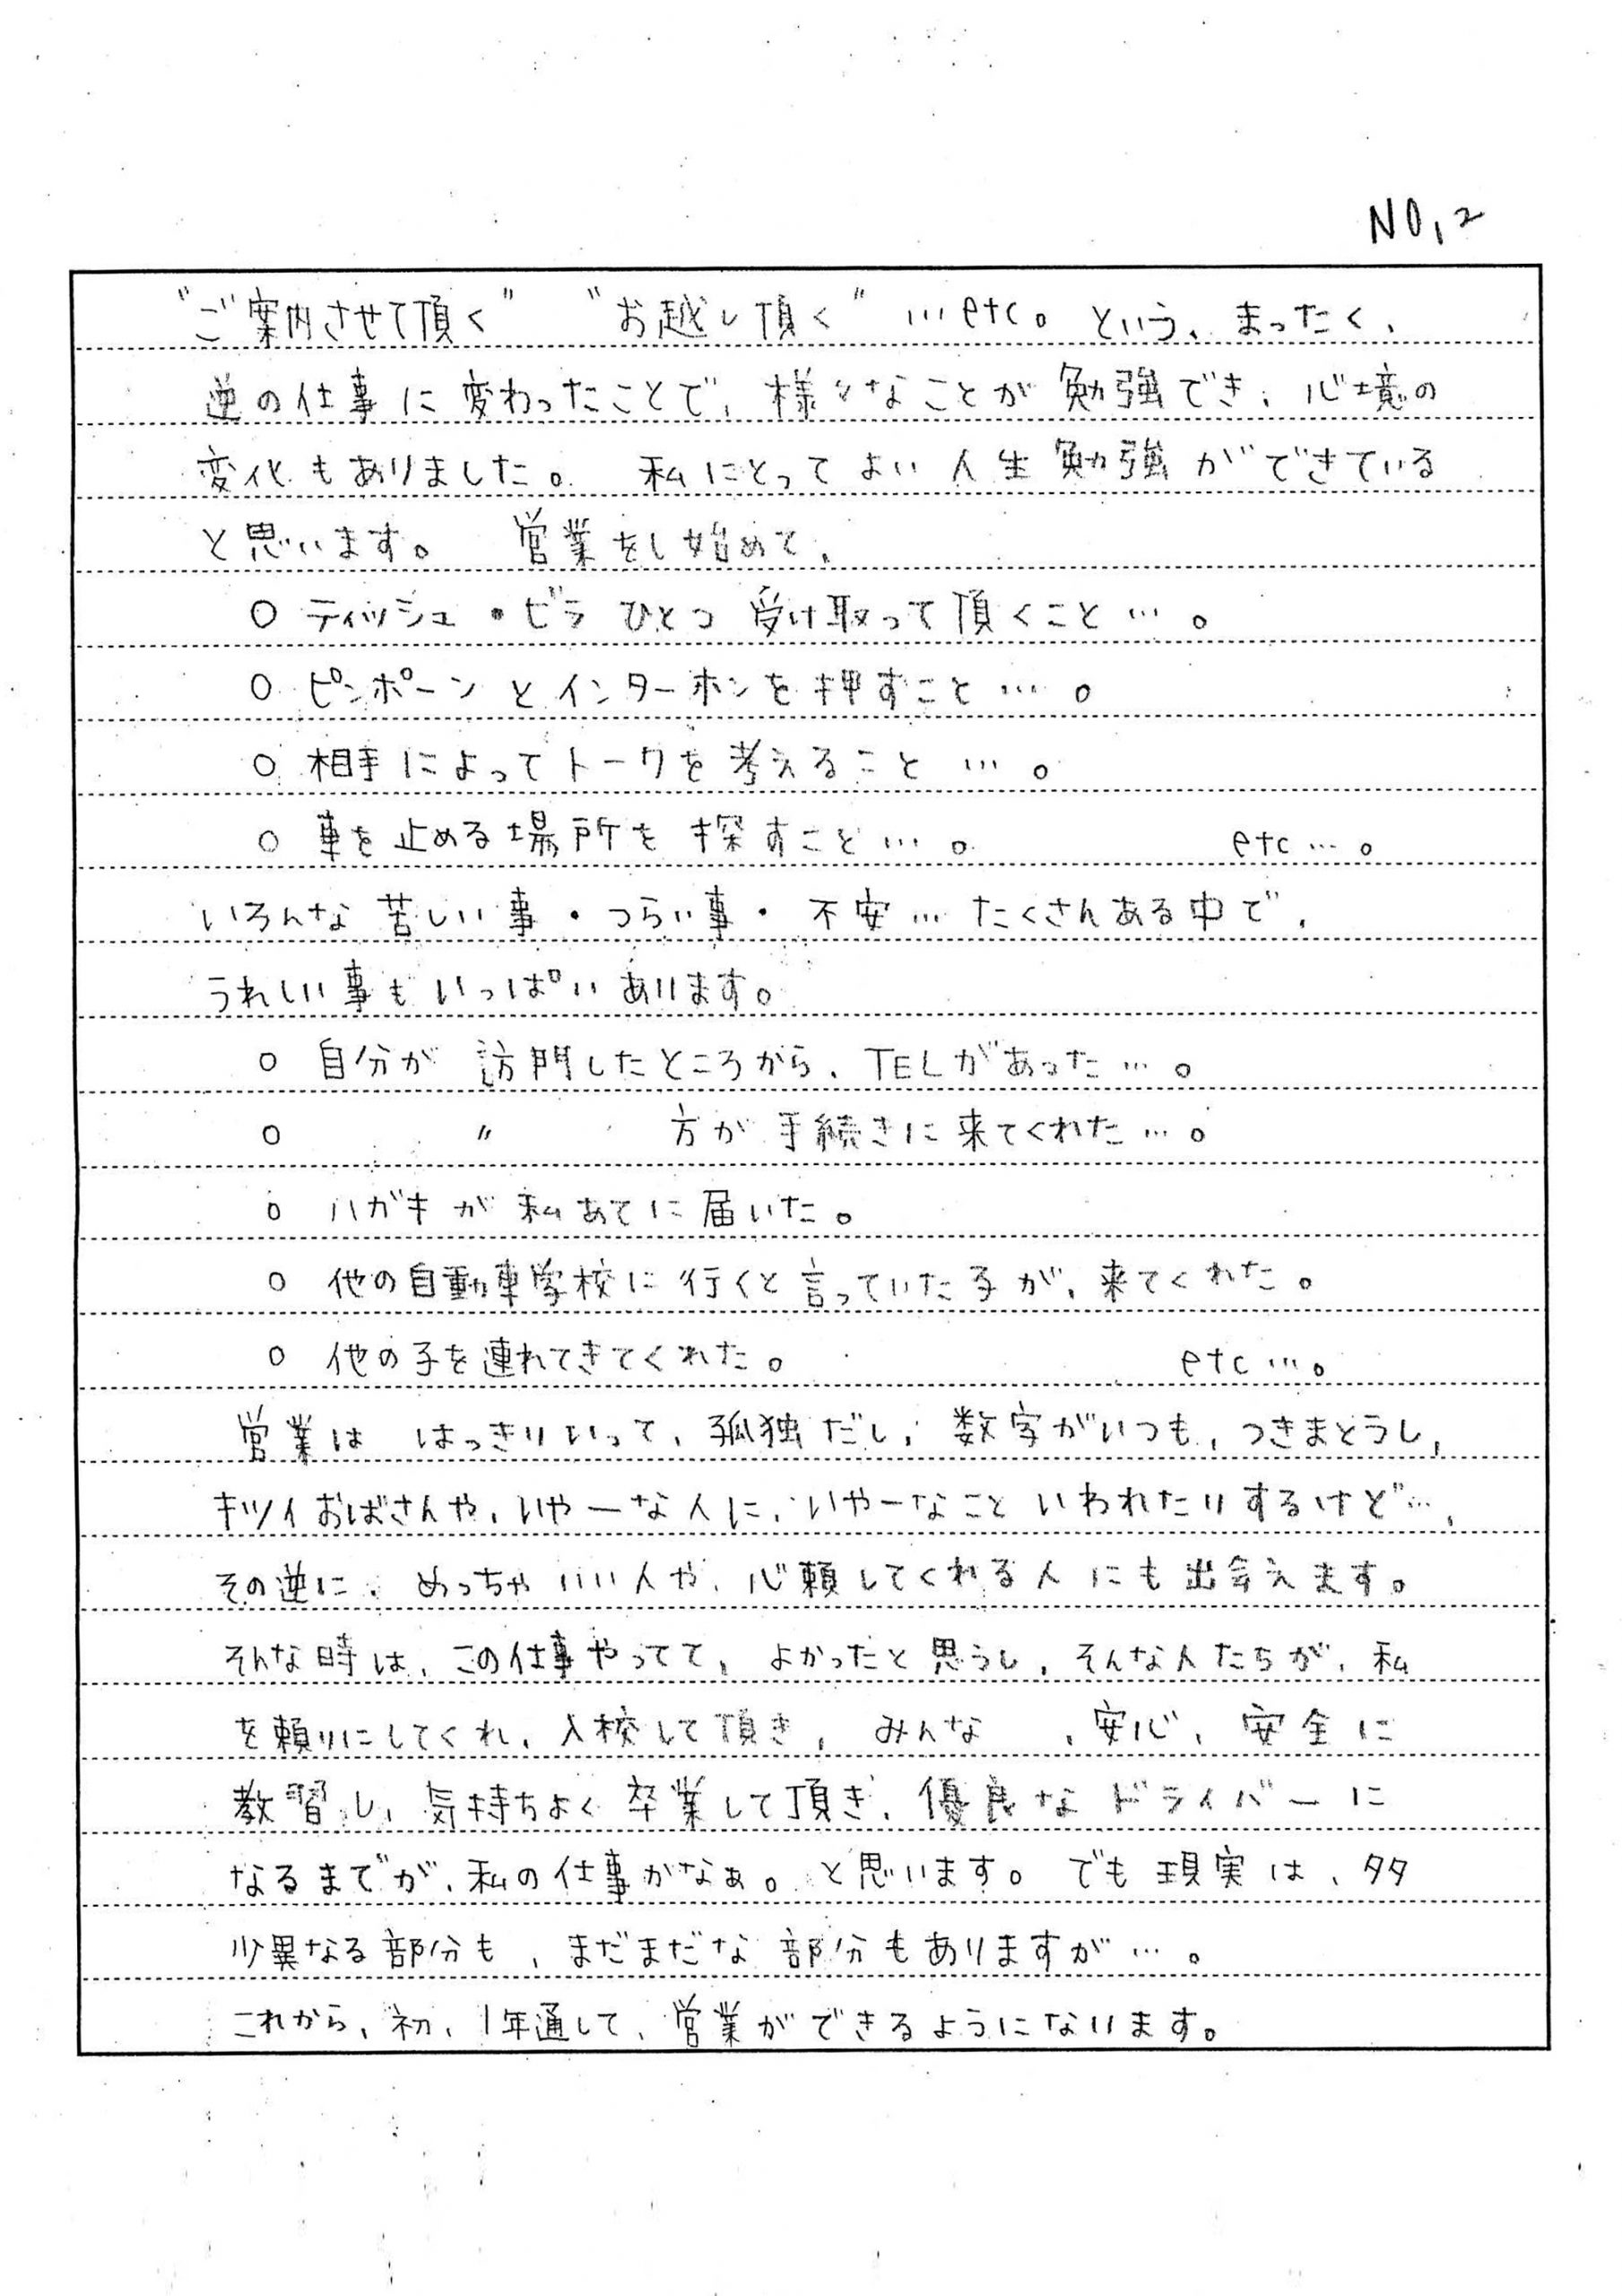 NO,2
"ご案内させて頂く" "お越し頂く" …etc。という、まったく、
逆の仕事に変わったことで、様々なことが勉強でき、心境の
変化もありました。 私にとってよい人生勉強ができている
と思います。 営業をし始めて、
○ ティッシュ・ビラ ひとつ 受け取って頂くこと…。
○ ピンポーンとインターホンを押すこと…。
○ 相手によってトークを考えること…。
○ 車を止める場所を探すこと…。 etc…。
いろんな苦しい事・つらい事・不安…たくさんある中で、
うれしい事もいっぱいあります。
○ 自分が訪問したところから、TELがあった…。
○ 〃 方が手続きに来てくれた…。
○ ハガキが私あてに届いた。
○ 他の自動車学校に行くと言っていた子が、来てくれた。
○ 他の子を連れてきてくれた。 etc…。
営業は はっきりいって、孤独だし、数字がいつも、つきまとうし、
キツイおばさんや、いやーな人に、いやーなこといわれたりするけど…、
その逆に、めっちゃいい人や、心頼してくれる人にも出会えます。
そんな時は、この仕事やってて、よかったと思うし、そんな人たちが、私
を頼りにしてくれ、入校して頂き、みんな 、安心、安全に
教習し、気持ちよく卒業して頂き、優良なドライバーに
なるまでが、私の仕事かなぁ。と思います。でも現実は、多
少異なる部分も、まだまだな部分もありますが…。
これから、初、1年通して、営業ができるようになります。